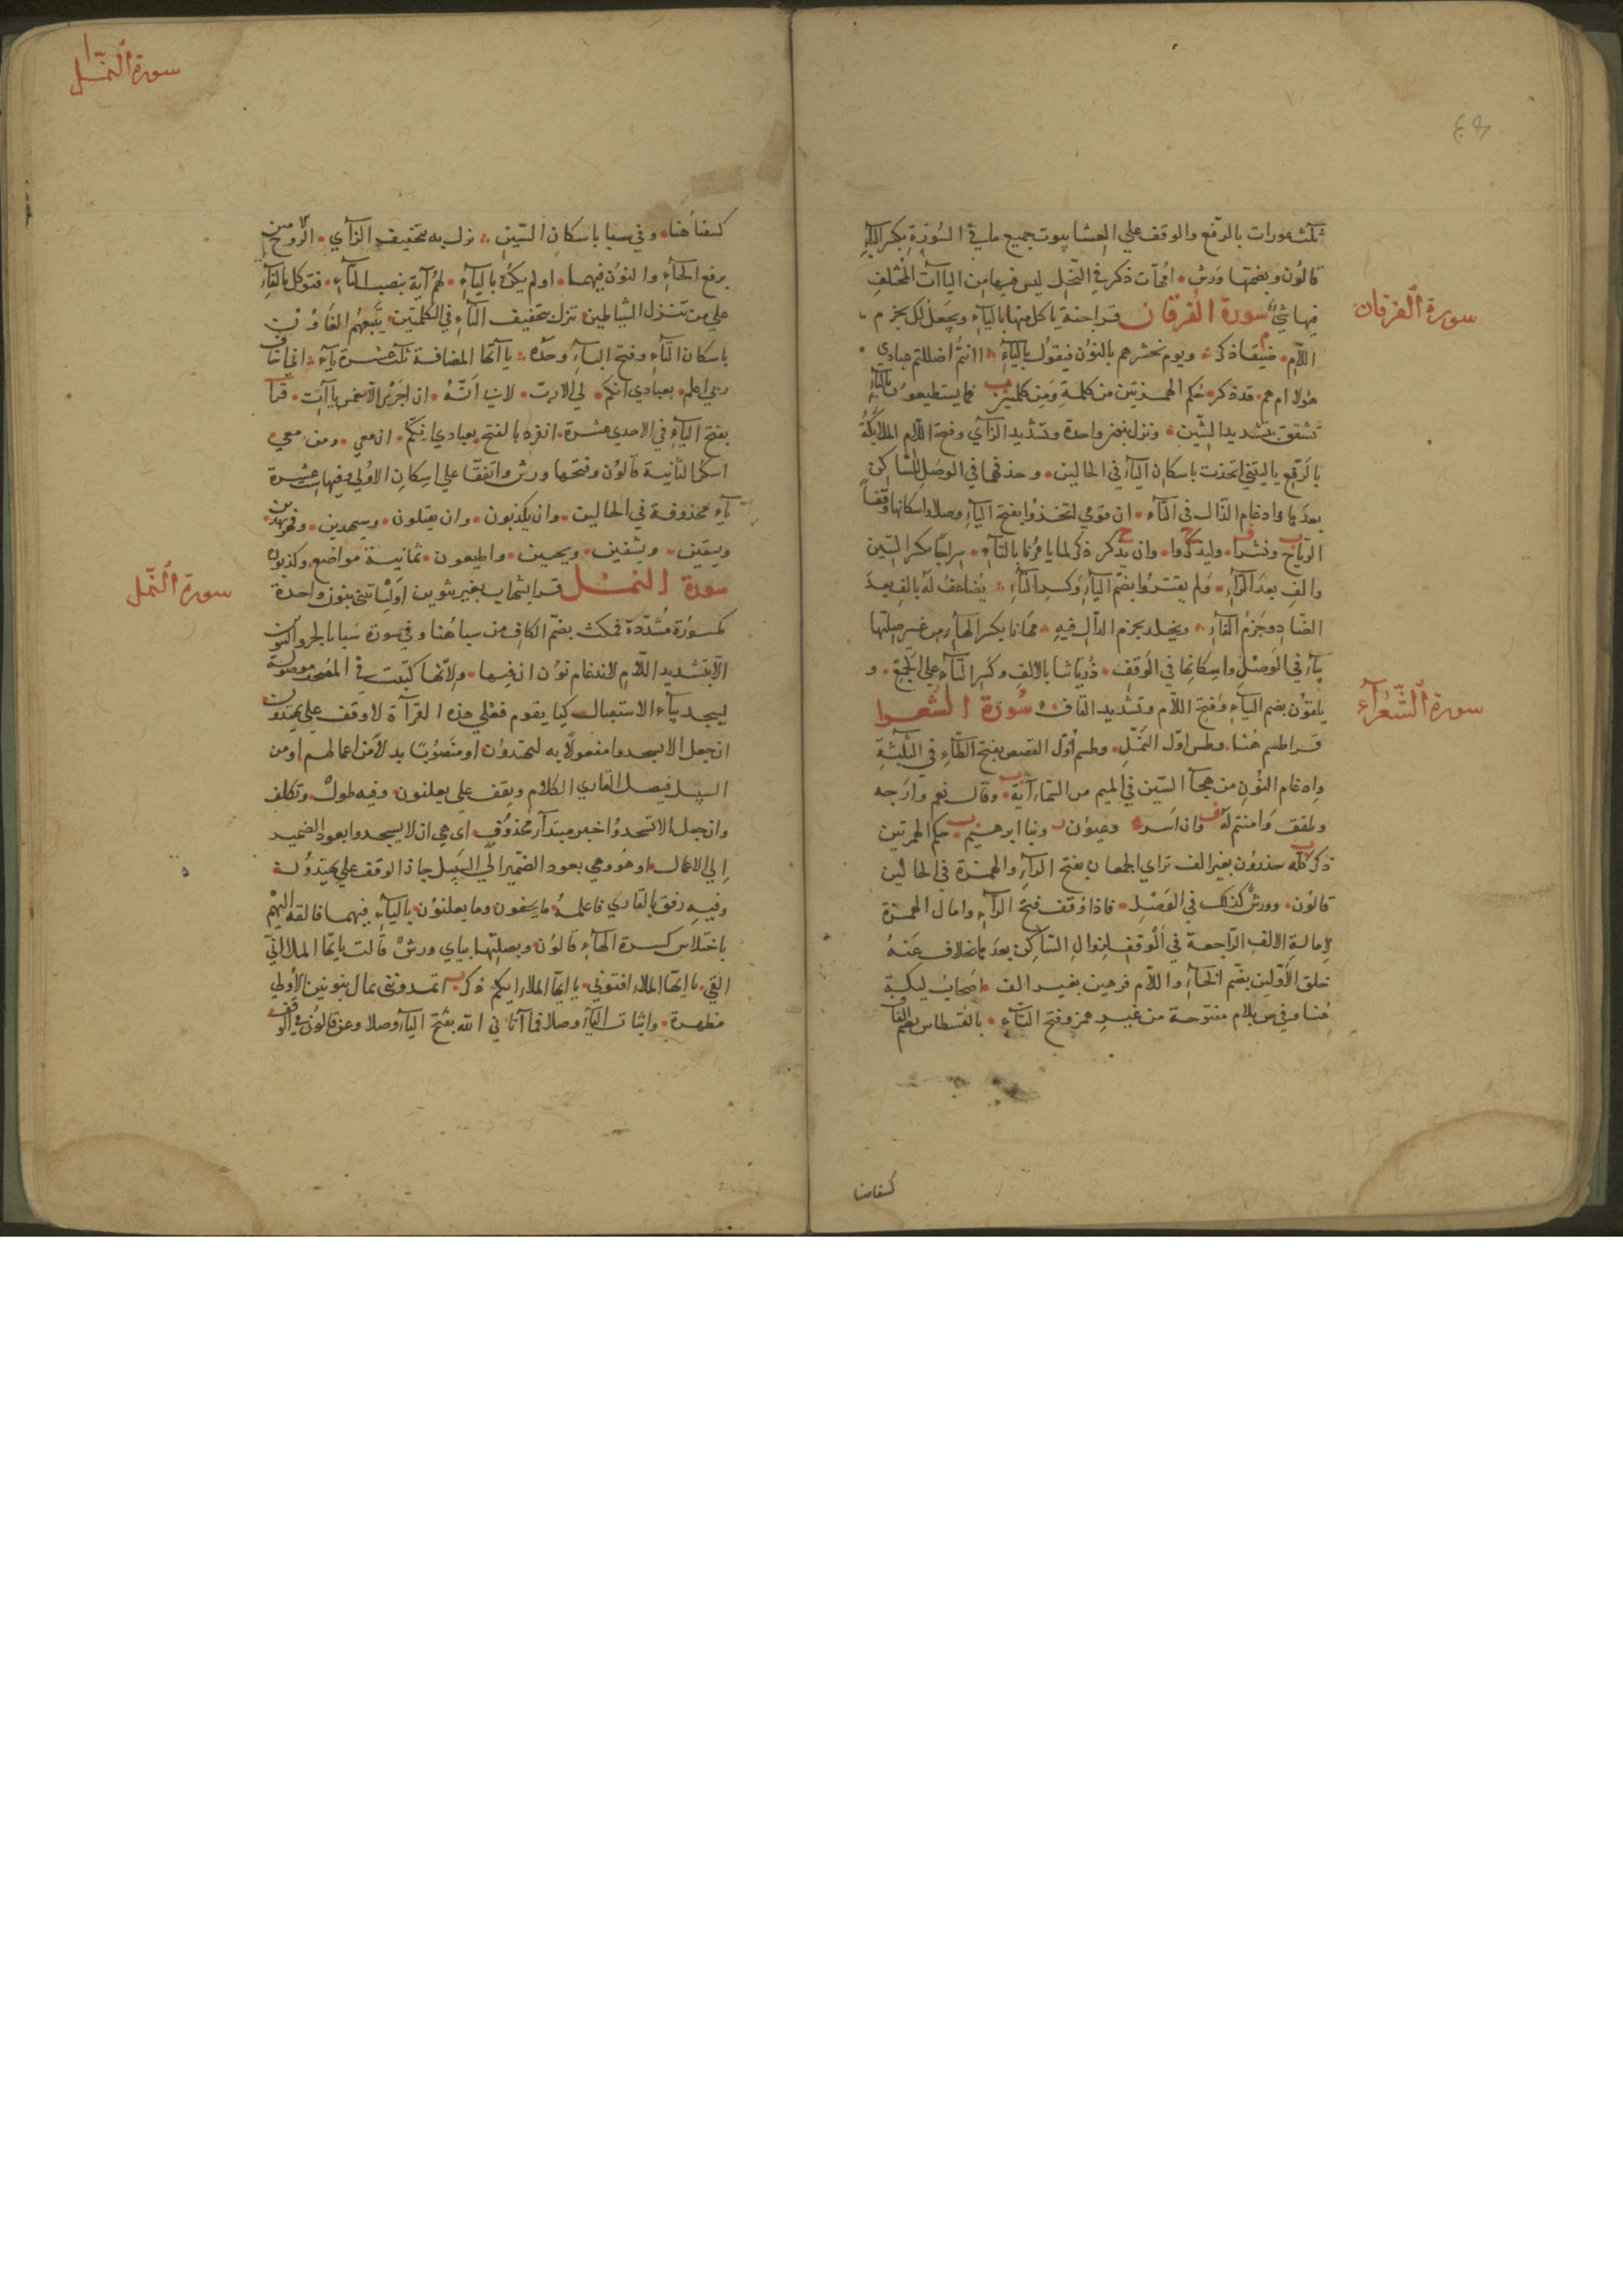 سورة الفرقان
ثلث عورات بالرفع والوقف علي العشا بيوت جميع ما في السورة بكسر الباء
قالون وبضمها ورش امهات ذكر في النحل ليس فيها من الياآت المختلف
فيها شيء سورة الفرقان قرا جنة ياكل منها بالياء ويجعل لك بجزم
اللام ضيقا ذكر ويوم نحشرهم بالنون فيقول بالياء اانتم اضللتم عبادي
هولا ام هم قد ذكر حكم الهمزتين من كلمة ومن كلمتين فما يستطيعون بالياء
تشقق بتشديد الشين ونزل بنون واحدة وتشديد الزاي وفتح اللام الملايكة
بالرفع ياليتني اتخذت باسكان الياء في الحالين وحذفها في الوصل للساكن
بعدها وادغام الذال في التاء ان قومي اتخذوا بفتح الياء وصلا واسكانها وقفا
الرياح ونشرا وليذكروا وان يذكر ذكر لما يامرنا بالتاء سراجا بكسر السين
والف بعد الراء ولم يقتروا بضم الياء وكسر التاء يضاعف له بالف بعد
الضاد وجزم الفاء ويخلد بجزم الدال فيه مهانا بكسر الهاء من غير صلتها
بياء في الوصل واسكانها في الوقف ذرياتنا بالالف وكسر التاء علي الجمع و
يلقون بضم الياء وفتح اللام وتشديد القاف سورة الشعرا
سورة الشعراء
قرا طسم هنا وطس اول النمل وطسم اول القصص بفتح الطاء في الثلثة
وادغام النون من هجا السين في الميم من السماء آية وقال نعم وارجه
وتلقف وامنتم له وان اسر وعيون ونبا ابرهيم حكم الهمزتين
ذكر كله حذرون بغير الف تراي الجمعان بفتح الراء والهمزة في الحالين
قالون وورش كذلك في الوصل فاذا وقف فتح الراء وامال الهمزة
لامالة الالف الراجعة في الوقف لزوال الساكن بعدها بخلاف عنه
خلق الاولين بضم الخاء واللام فرهين بغير الف اصحاب ليكة
هنا وفي ص بلام مفتوحة من غير همز وفتح التاء بالقسطاس بضم القاف
كسفا هنا
سورة النمل
كسفا هنا وفي سبا باسكان السين نزل به بتخفيف الزاي الروح الامين
برفع الحاء والنون فيهما اولم يكن بالياء لهم آية بنصب التاء فتوكل بالفاء
علي من تنزل الشياطين تنزل بتخفيف التاء في الكلمتين يتبعهم الغاون
باسكان التاء وفتح الباء وحده ياآتها المضافة ثلث عشرة ياء اني اخاف
ربي اعلم بعبادي انكم لي الارب لابي انه ان اجري الا خمس ياآت قرا
بفتح الياء في الاحدي عشرة انفرد بالفتح بعبادي انكم ان معي ومن معي
اسكن الثانية قالون وفتحها ورش واتفقا علي اسكان الاولي وفيها ست عشرة
ياء محذوفة في الحالين وان يكذبون وان يقتلون وسيهدين وفهو يهدين
ويسقين ويشفين ويحيين واطيعون ثمانية مواضع وكذبون
سورة النمل
سورة النمل قرا بشهاب بغير تنوين اوليأتيني بنون واحدة
مكسورة مشددة فمكث بضم الكاف من سبا هنا وفي سورة سبا بالجر والتنوين
الا بتشديد اللام لادغام نون ان فيها ولانها كتبت في المصحف موصولة
يسجد بياء الاستقبال كيا يقوم فعلي هذه القرآة لا وقف علي يهتدون
ان جعل الا يسجدوا مفعولا به ليهتدون او منصوبا بدلا من اعمالهم او من
السبيل فيصل القاري الكلام ويقف علي يعلنون وفيه طول وتكلف
وان جعل الا تسجدوا خبر مبتدآء محذوف اي هي ان لا يسجدوا بعود الضمير
الي الاعمال او هو وهي بعود الضمير الي السبيل جاز الوقف علي يهتدون
وفيه رفق بالقاري فاعلمه ما يخفون وما يعلنون بالياء فيهما فالقه اليهم
باختلاس كسرة الهاء قالون وبصلتها بياي ورش قالت ياايها الملا اني
القي ياايها الملاء افتوني ياايها الملاء ايكم ذكر اتمدونني بمال بنونين الاولي
مظهرة واثبات الياء وصلا فما آتاني الله بفتح الياء وصلا وعن قالون في الوقف